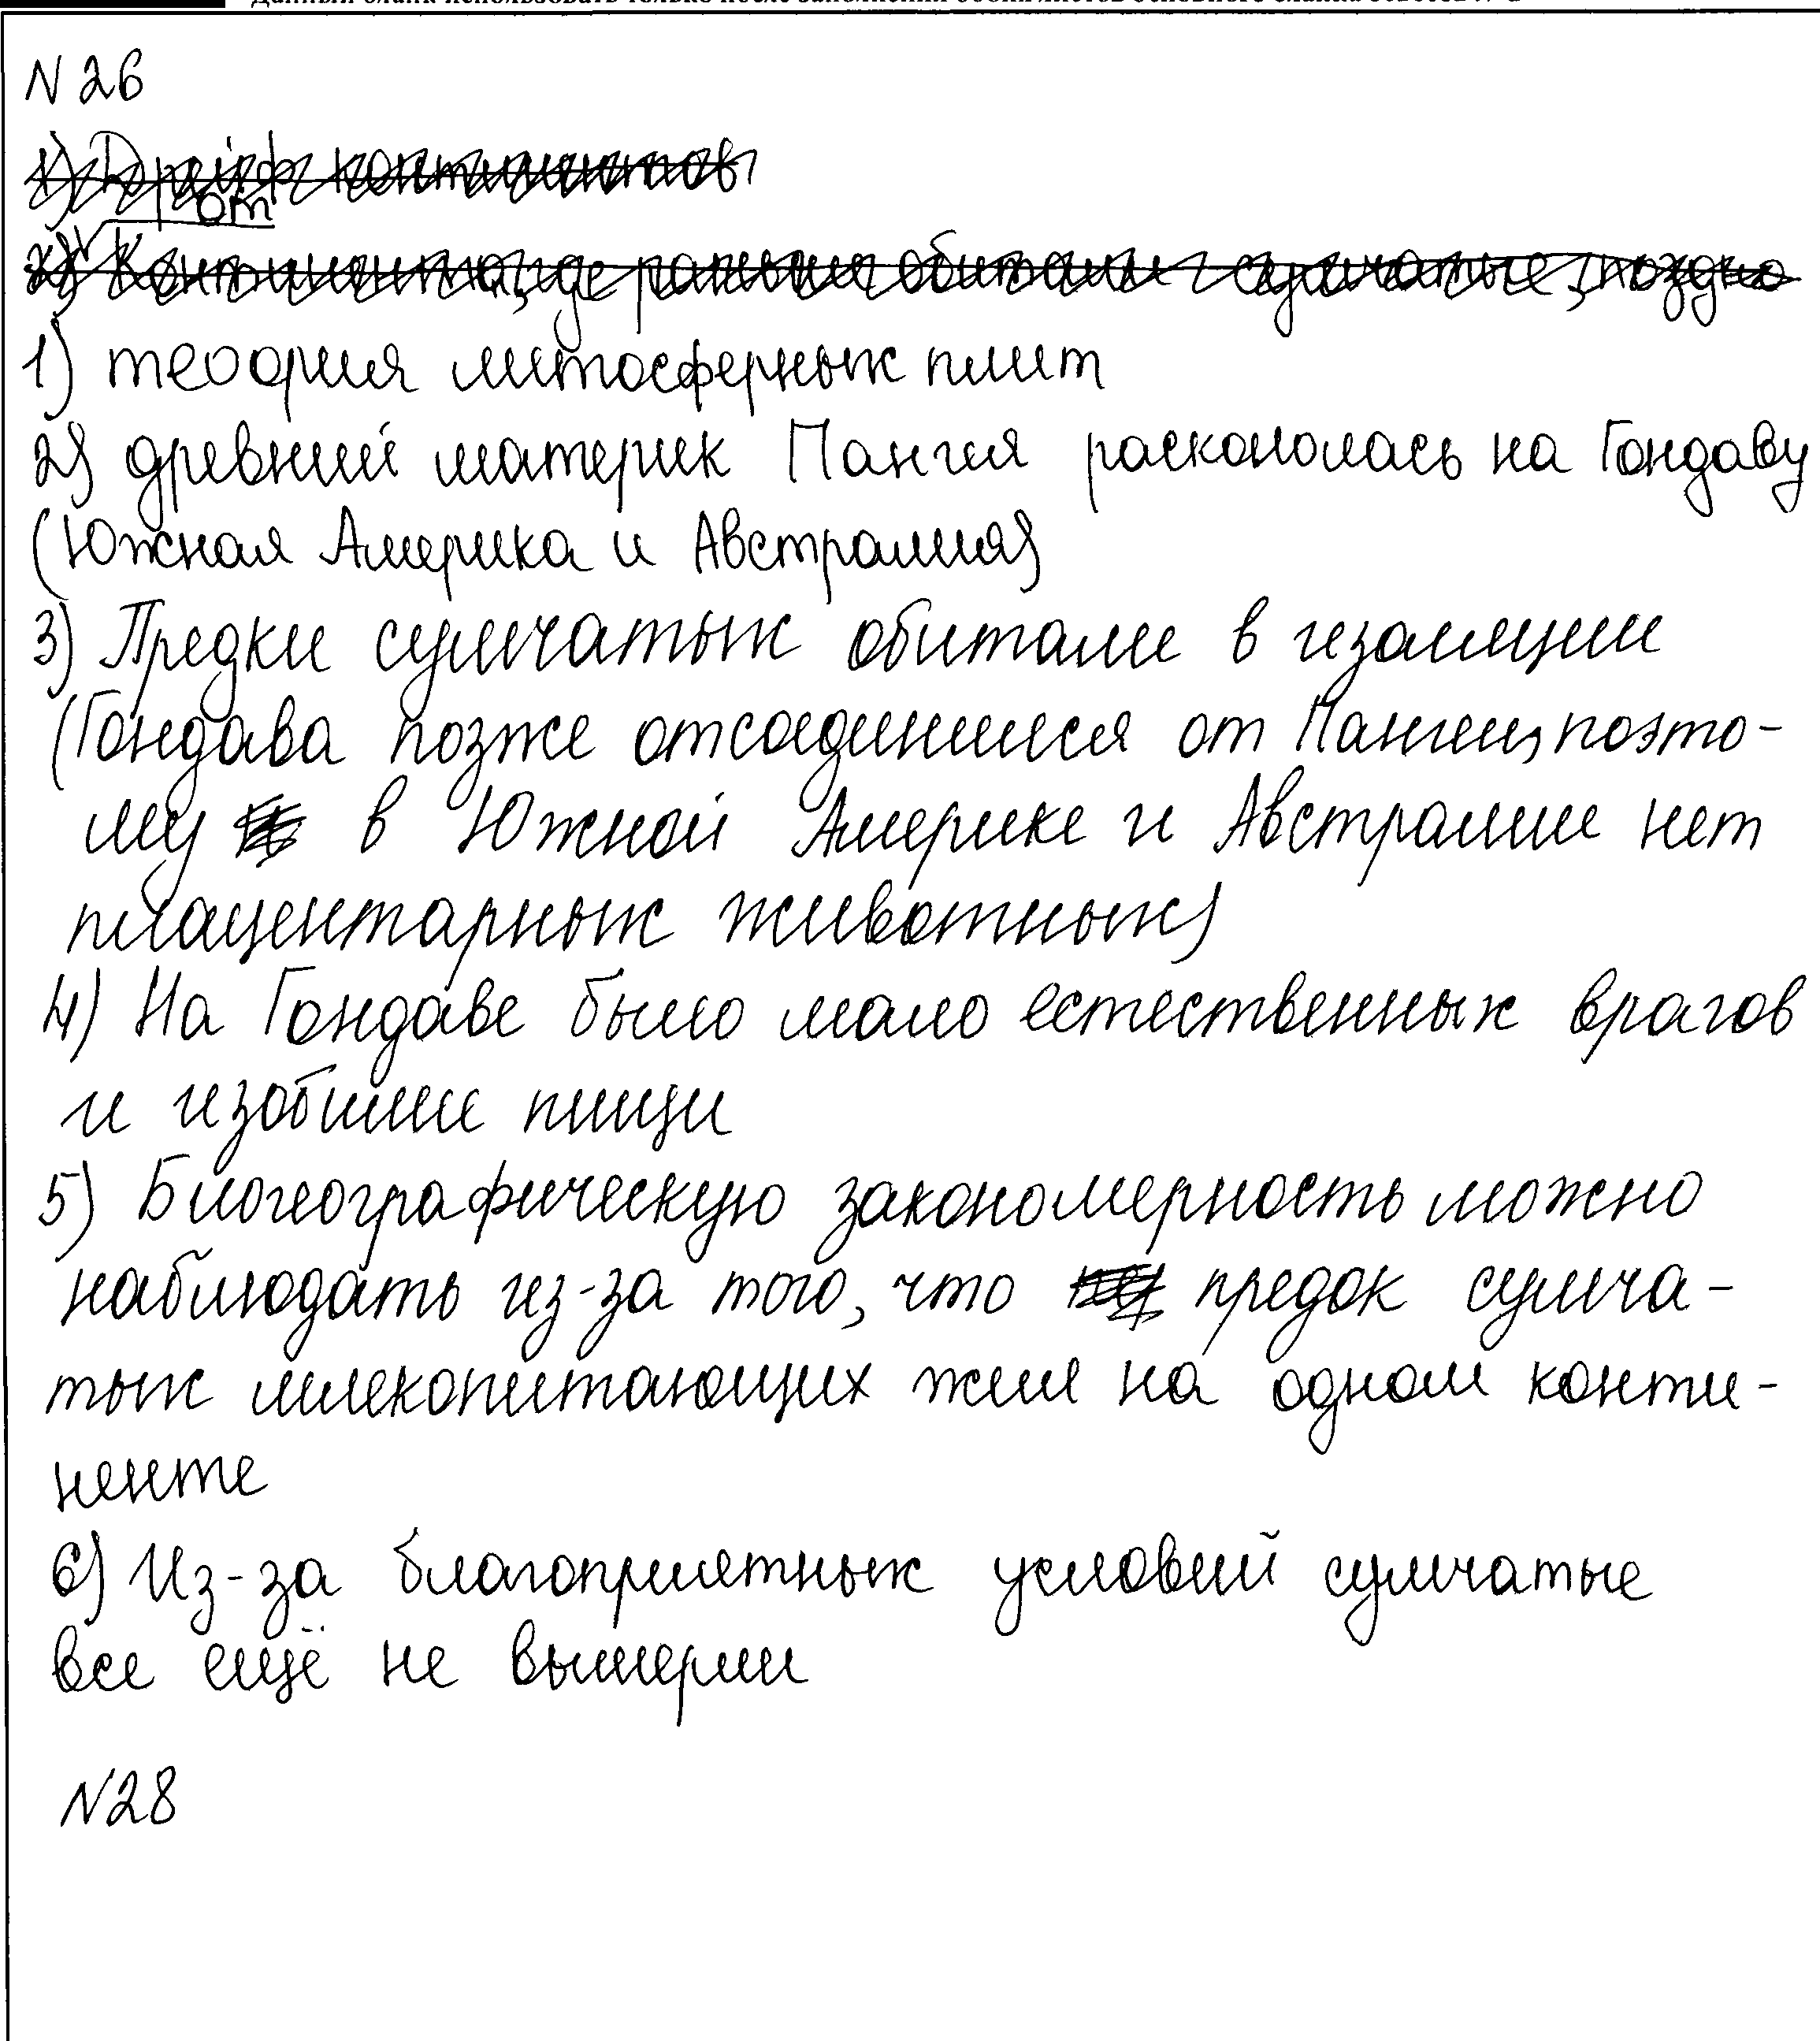 N 26
1) Дрейф континентов
от
2) Континента, где раньше обитали сумчатые, поздно
1) теория литосферных плит
2) древний материк Пангея раскололась на Гондаву
(Южная Америка и Австралия)
3) Предки сумчатых обитали в изоляции
(Гондава позже отсоединился от Пангеи, поэто-
му в Южной Америке и Австралии нет
плацентарных животных)
4) На Гондаве было мало естественных врагов
и изобилие пищи
5) Биогеографическую закономерность можно
наблюдать из-за того, что предок сумча-
тых млекопитающих жил на одном конти-
ненте
6) Из-за благоприятных условий сумчатые
все ещё не вымерли
N28